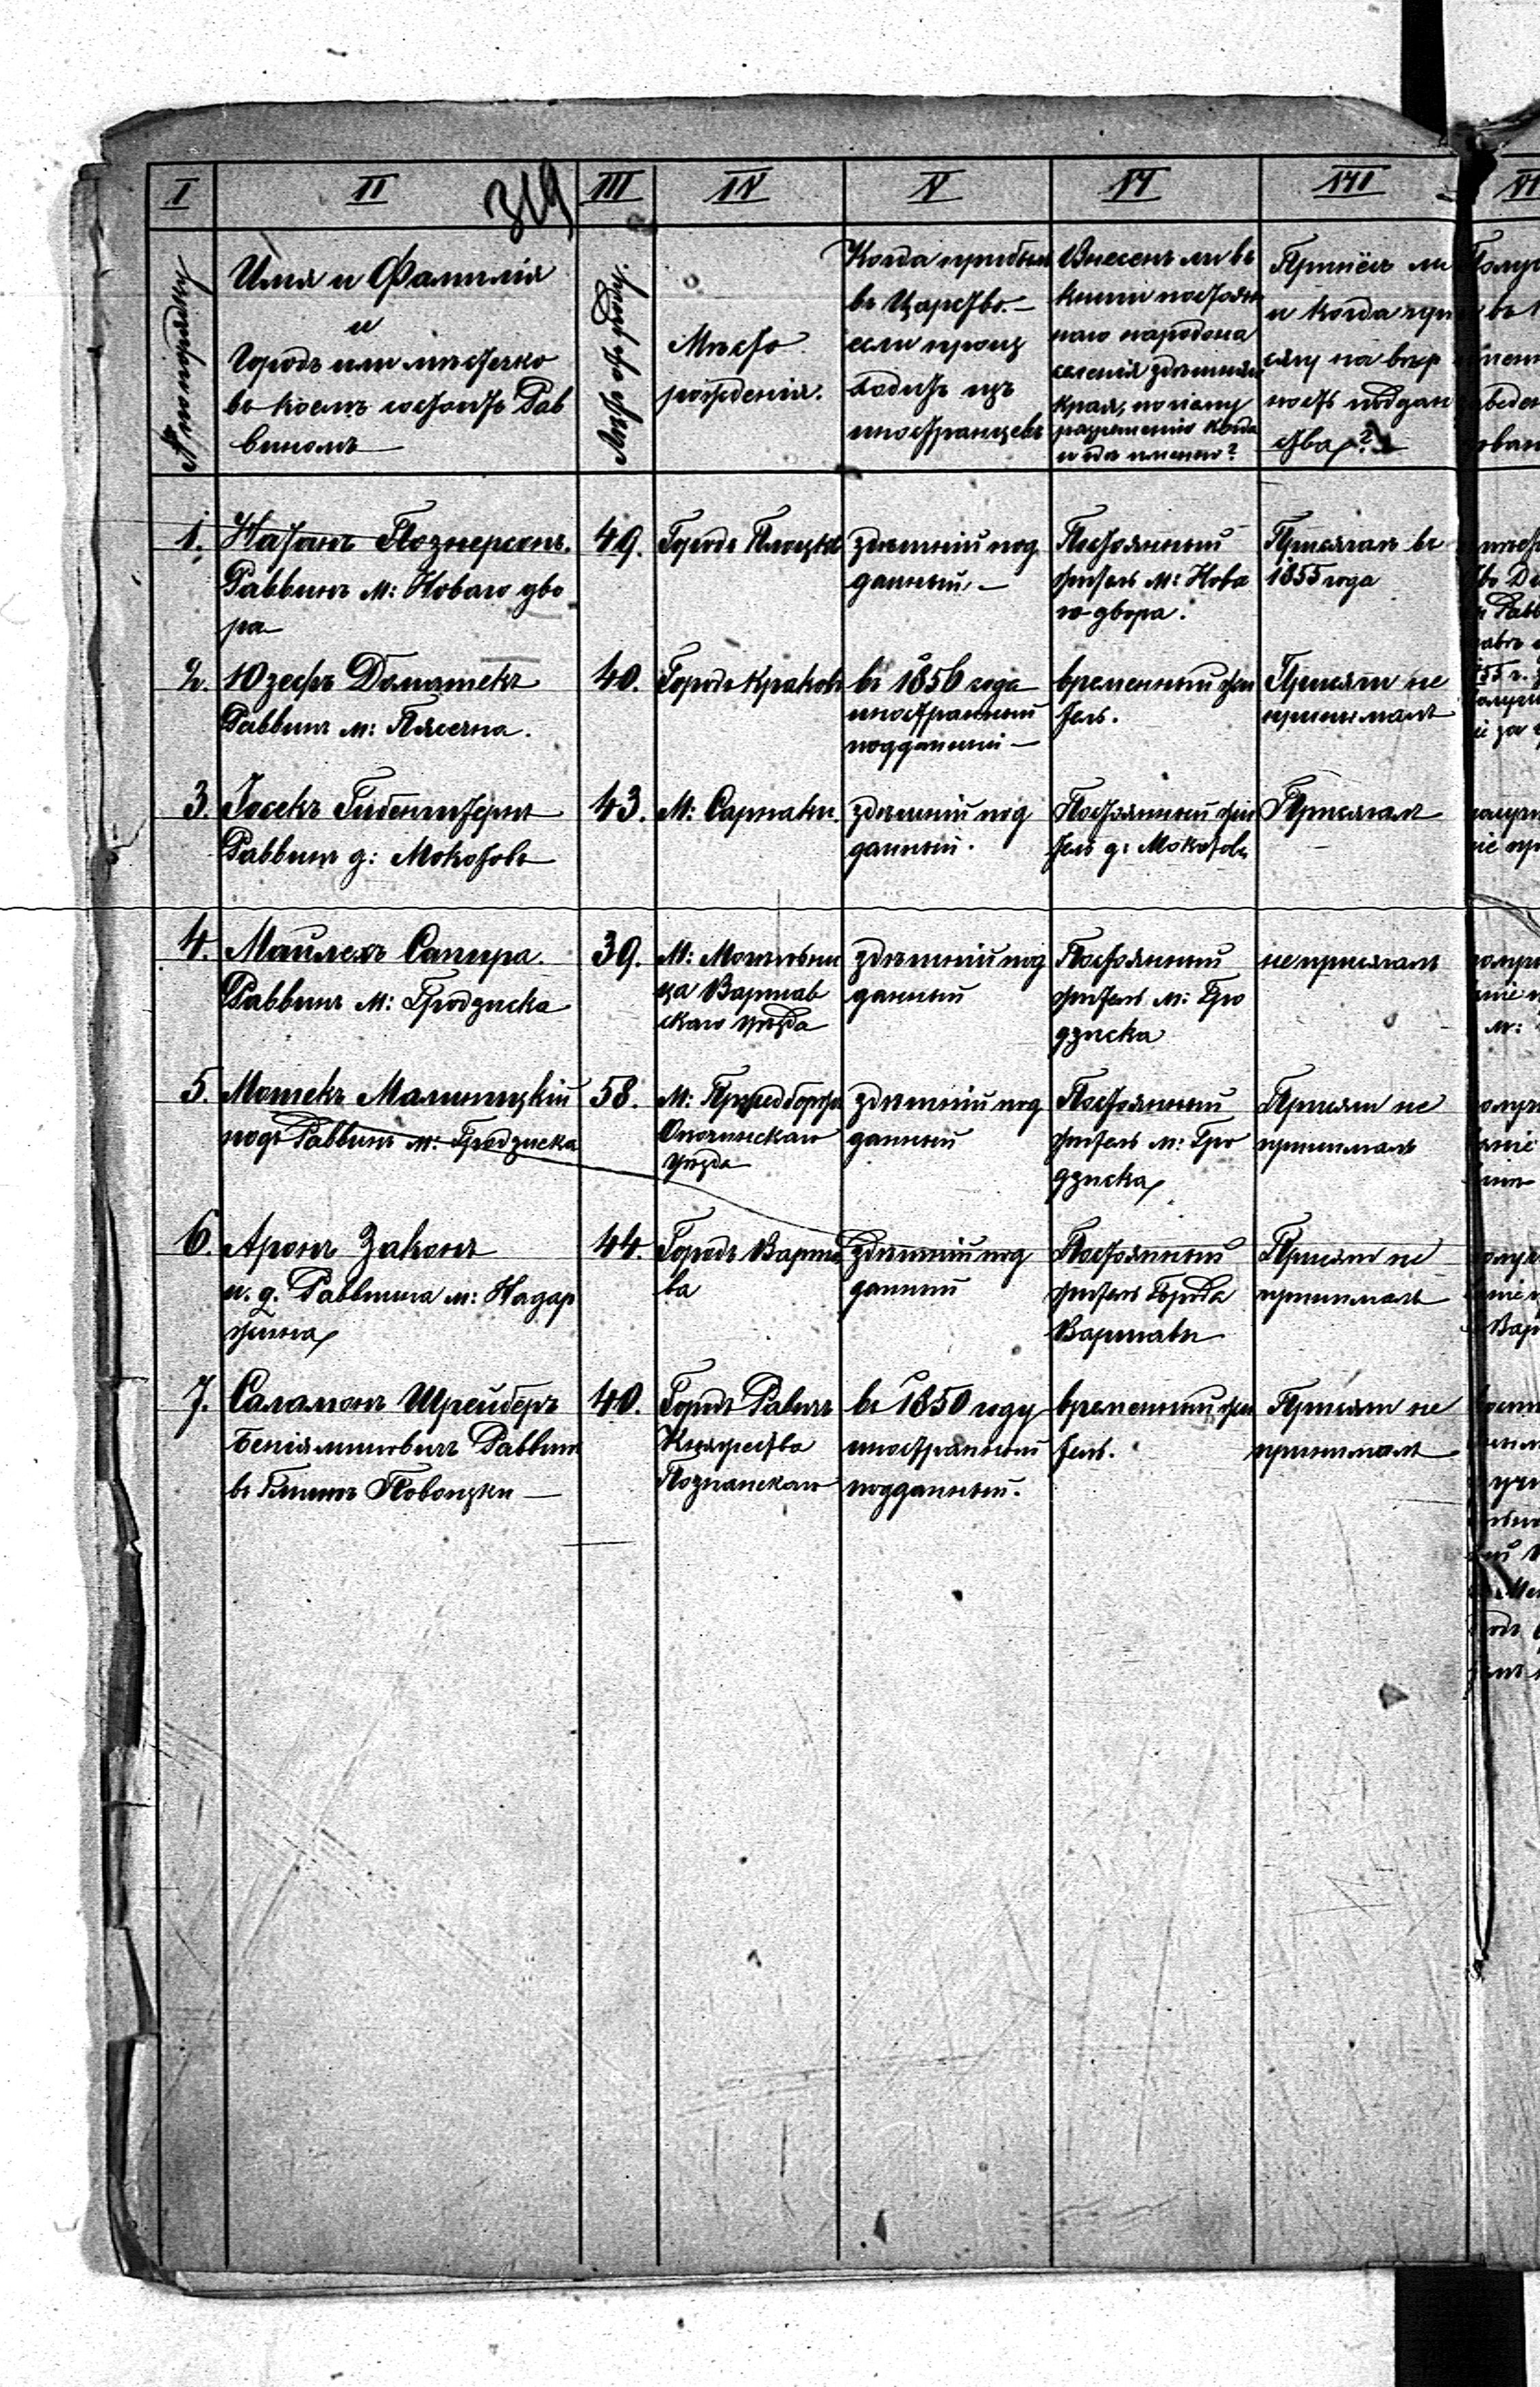 I II 319 III IV V VI VII
№ по порядку
Имя и Фамилія
и
городъ или мѣстечко
въ коемъ состоитъ Рав
виномъ
Лѣтъ отъ роду.
Мѣсто
рожденія.
Когда прибылъ
въ Царство. —
если происх
ходитъ изъ
иностранцевъ
Внесенъ ли въ
книги постоян
наго народона
селенія здѣшняго
края, по чьему
разрешенію когда
и гдѣ именно?
Принёсъ ли
и когда при
сягу на вѣр
ность поддан
ства?
1.
Натанъ Познерсонъ.
Раввинъ м: Новаго дво
ра
49.
Городъ Плоцкъ
здѣшній под
данный. —
Постоянный
житель м: Нова
го двора.
Присягалъ въ
1855 года
2.
Юзефъ
Раввинъ м: Пясечна.
40.
Городъ Краковъ
въ 1856 года
иностранный
подданный —
временный жи
тель.
Присяги не
принималъ
3.
Іосекъ
Раввинъ д: Мокотовъ
43.
М: Сарнаки.
здѣшній под
данный.
Постоянный жи
тель д: Мокотовъ
Присягалъ
4.
Майлехъ Сапира.
Раввинъ М: Гродзиска
39.
М:
ца Варшав
скаго уѣзда
здѣшній под
данный
Постоянный
житель м: Гро
дзиска
не присягалъ
5.
Мошекъ Малиницкій
подъ Раввинъ м: Гродзиска
58.
М:
Опочинскаго
уѣзда
здѣшній под
данный
Постоянный
житель м: Гро
дзиска
Присяги не
принималъ
6.
Аронъ Законъ
и. д. Раввина м: Надар
жина
44.
Городъ Варша
ва
здѣшній под
данный
Постоянный
житель Города
Варшавы
Присяги не
принималъ
7.
Саламонъ Шрейберъ
Беніяминовичъ Раввинъ
въ Гминѣ Повонзки —
40.
Городъ Равичъ
Княжества
Познанскаго
въ 1850 году
иностранный
подданный.
временный жи
тель.
Присяги не
принималъ